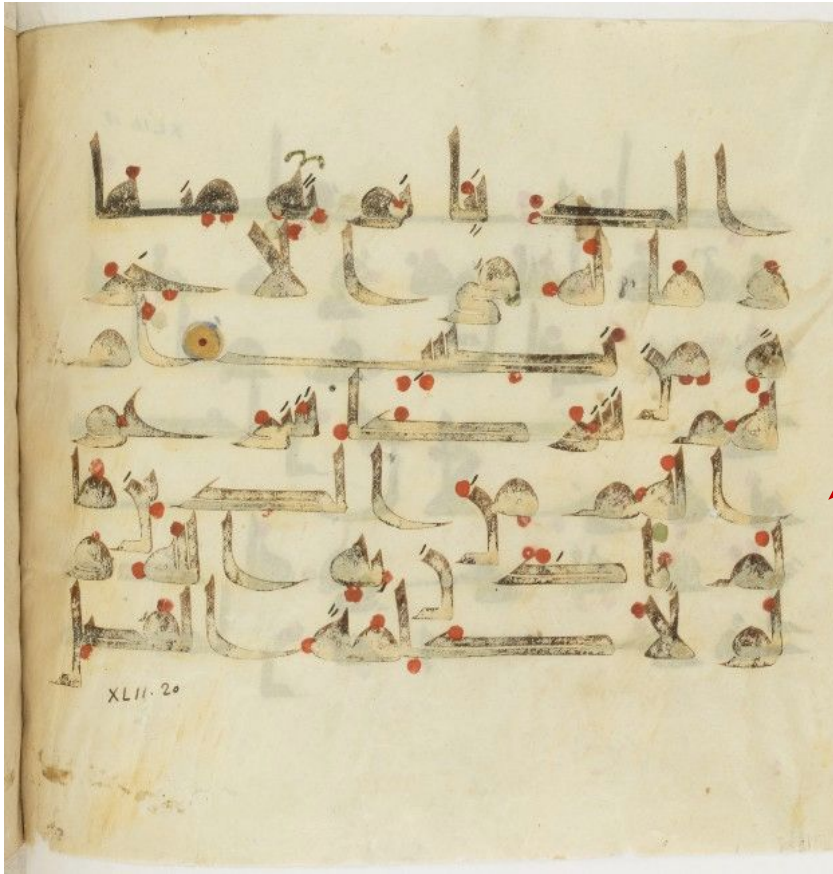 الدنيا نوته منها
وما له في الاخر
ة من نصيب ام
لهم شركا شرعو
ا لهم من الدين ما
لم ياذن به الله و
لو لا كلمة الفصل
XLII. 20